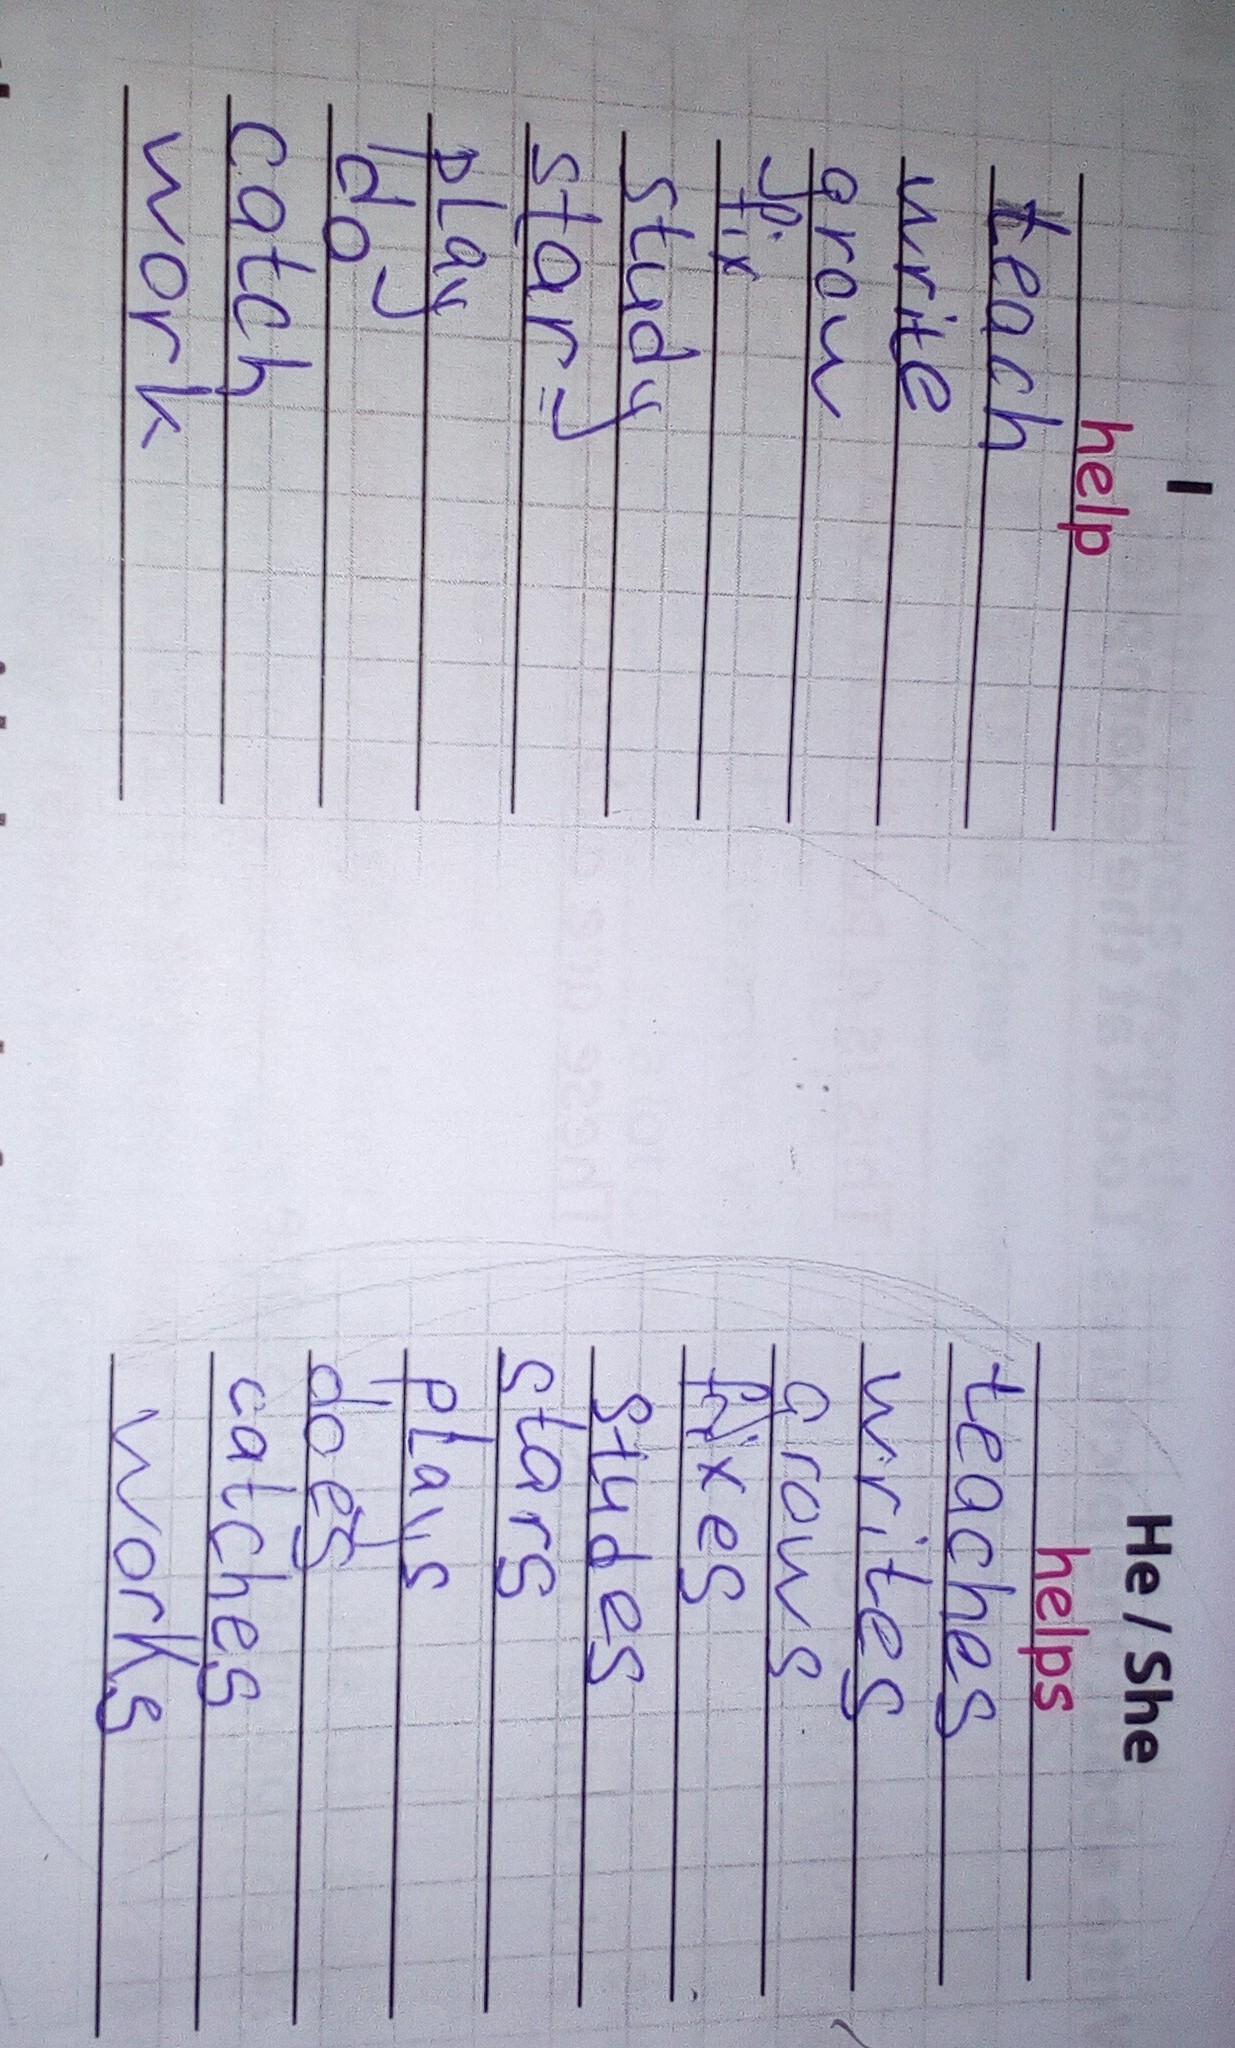 I He / She
help helps
teach teaches
write writes
grow grows
fix fixes
study studes
star=y stars
play plays
do does
catch catches
work works